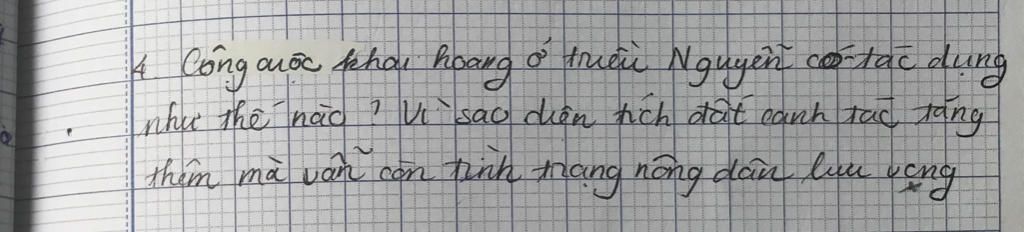 4. Công cuộc khai hoang ở triều Nguyễn có tác dụng
như thế nào? Vì sao diện tích đất canh tác tăng
thêm mà vẫn còn tình trạng nông dân lưu vong